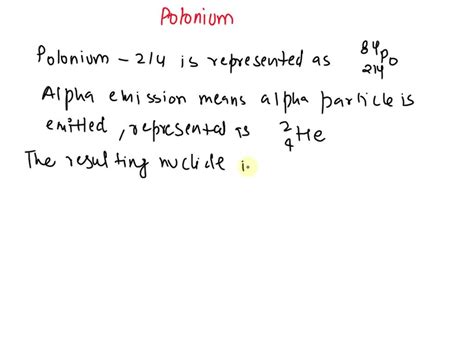 Polonium
Polonium - 214 is represented as ⁸⁴₂₁₄Po
Alpha emission means alpha particle is
emitted, represented is ²₄He
The resulting nuclide i.